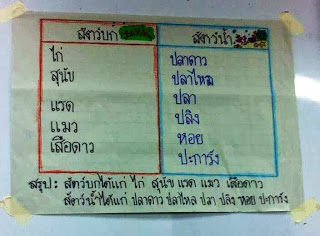 สัตว์บก
สัตว์น้ำ
ไก่
ปลาดาว
สุนัข
ปลาไหล
ปลา
แรด
ปลิง
แมว
หอย
เสือดาว
ปะการัง
สรุป : สัตว์บกได้แก่ ไก่ สุนัข แรด แมว เสือดาว
สัตว์น้ำได้แก่ ปลาดาว ปลาไหล ปลา ปลิง หอย ปะการัง